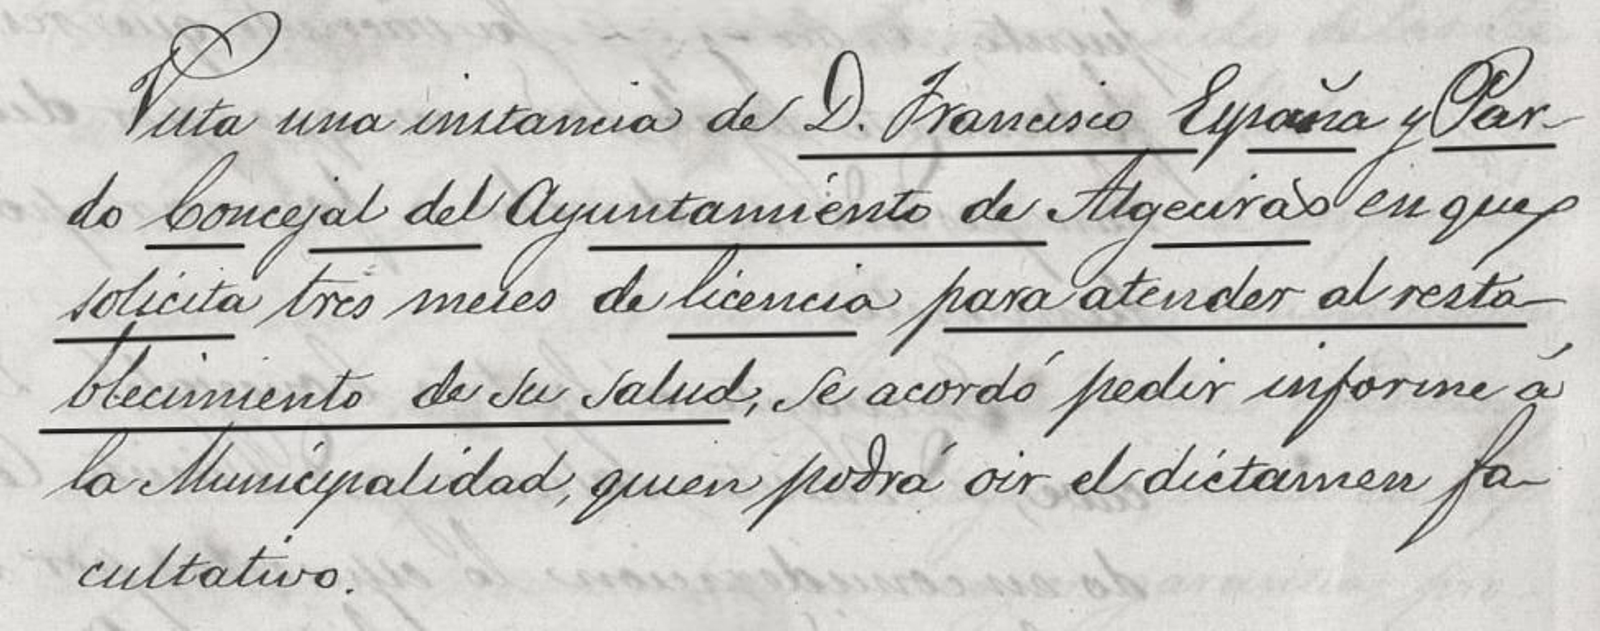 Vista una instancia de D. Francisco España y Par-
do Concejal del Ayuntamiento de Algeciras en que
solicita tres meses de licencia para atender al resta-
blecimiento de su salud, se acordó pedir informe á
la Municipalidad, quien podrá oir el dictamen fa-
cultativo.